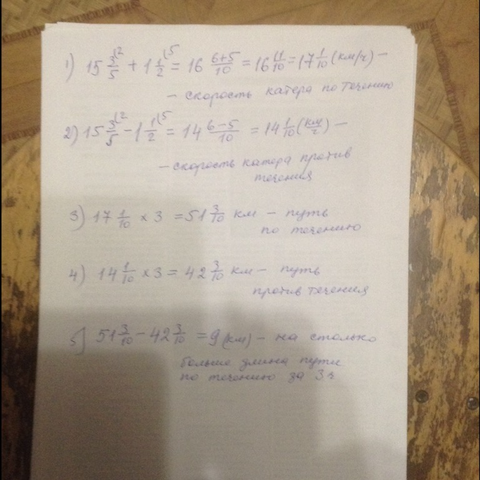 1) 15 3/5 \2 + 1 1/2 \5 = 16 6+5/10 = 16 11/10 = 17 1/10 (км/ч) –
– скорость катера по течению
2) 15 3/5 \2 – 1 1/2 \5 = 14 6–5/10 = 14 1/10 (км/ч) –
– скорость катера против
течения
3) 17 1/10 × 3 = 51 3/10 км – путь
по течению
4) 14 1/10 × 3 = 42 3/10 км – путь
против течения
5) 51 3/10 – 42 3/10 = 9 (км) – на столько
больше длина пути
по течению за 3 ч